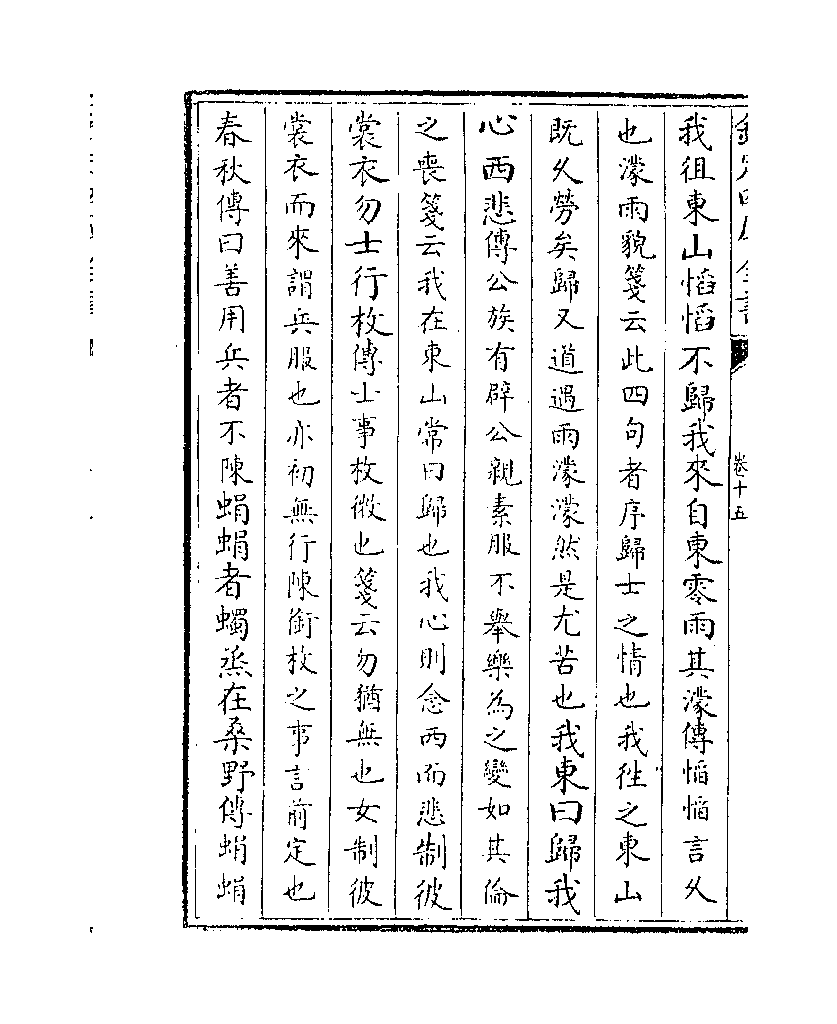 欽定四庫全書
卷十五
我徂東山慆慆不歸我來自東零雨其濛傳慆慆言乆
也濛雨貌箋云此四句者序歸士之情也我徃之東山
既乆勞矣歸又道遇雨濛濛然是尤苦也我東曰歸我
心西悲傳公族有辟公親素服不舉樂為之變如其倫
之喪箋云我在東山常曰歸也我心則念西而悲制彼
裳衣勿士行枚傳士事枚微也箋云勿猶無也女制彼
裳衣而來謂兵服也亦初無行陳銜枚之事言前定也
春秋傳曰善用兵者不陳蜎蜎者蠋烝在桑野傳蜎蜎